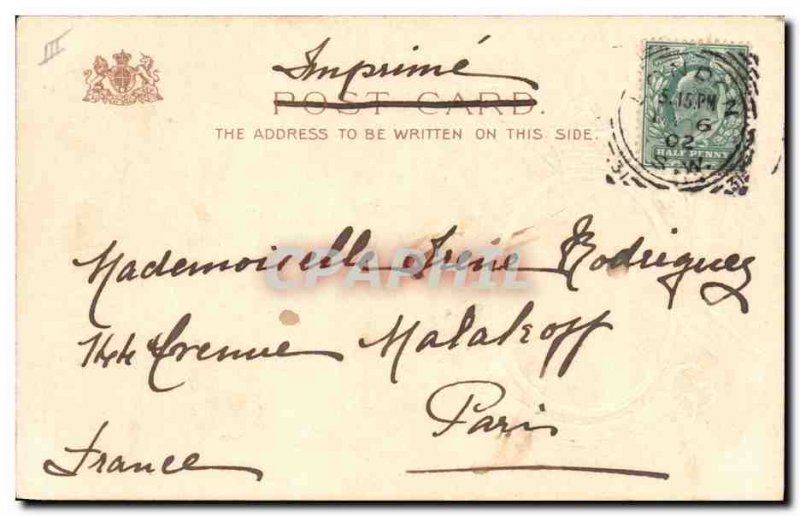 III
Imprimé
POST CARD.
THE ADDRESS TO BE WRITTEN ON THIS SIDE.
LONDON
5.15 PM
6
02
S.W.
31
HALF PENNY
CPAPHIL
Mademoiselle Irene Rodriguez
144 Avenue Malakoff
Paris
France